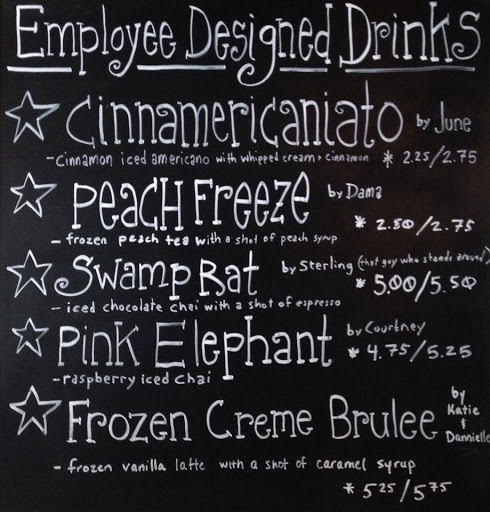 Employee Designed Drinks
Cinnamericaniato by June
-Cinnamon iced americano with whipped cream + Cinnamon * 2.25/2.75
Peach Freeze by Dama
* 2.50/2.75
- frozen peach tea with a shot of peach syrup
Swamp Rat by Sterling (that guy who stands around)
* 5.00/5.50
- iced chocolate chai with a shot of espresso
Pink Elephant by Courtney
* 4.75/5.25
- raspberry iced chai
Frozen Creme Brulee by Katie & Dannielle
- frozen vanilla latte with a shot of caramel syrup
* 5.25/5.75